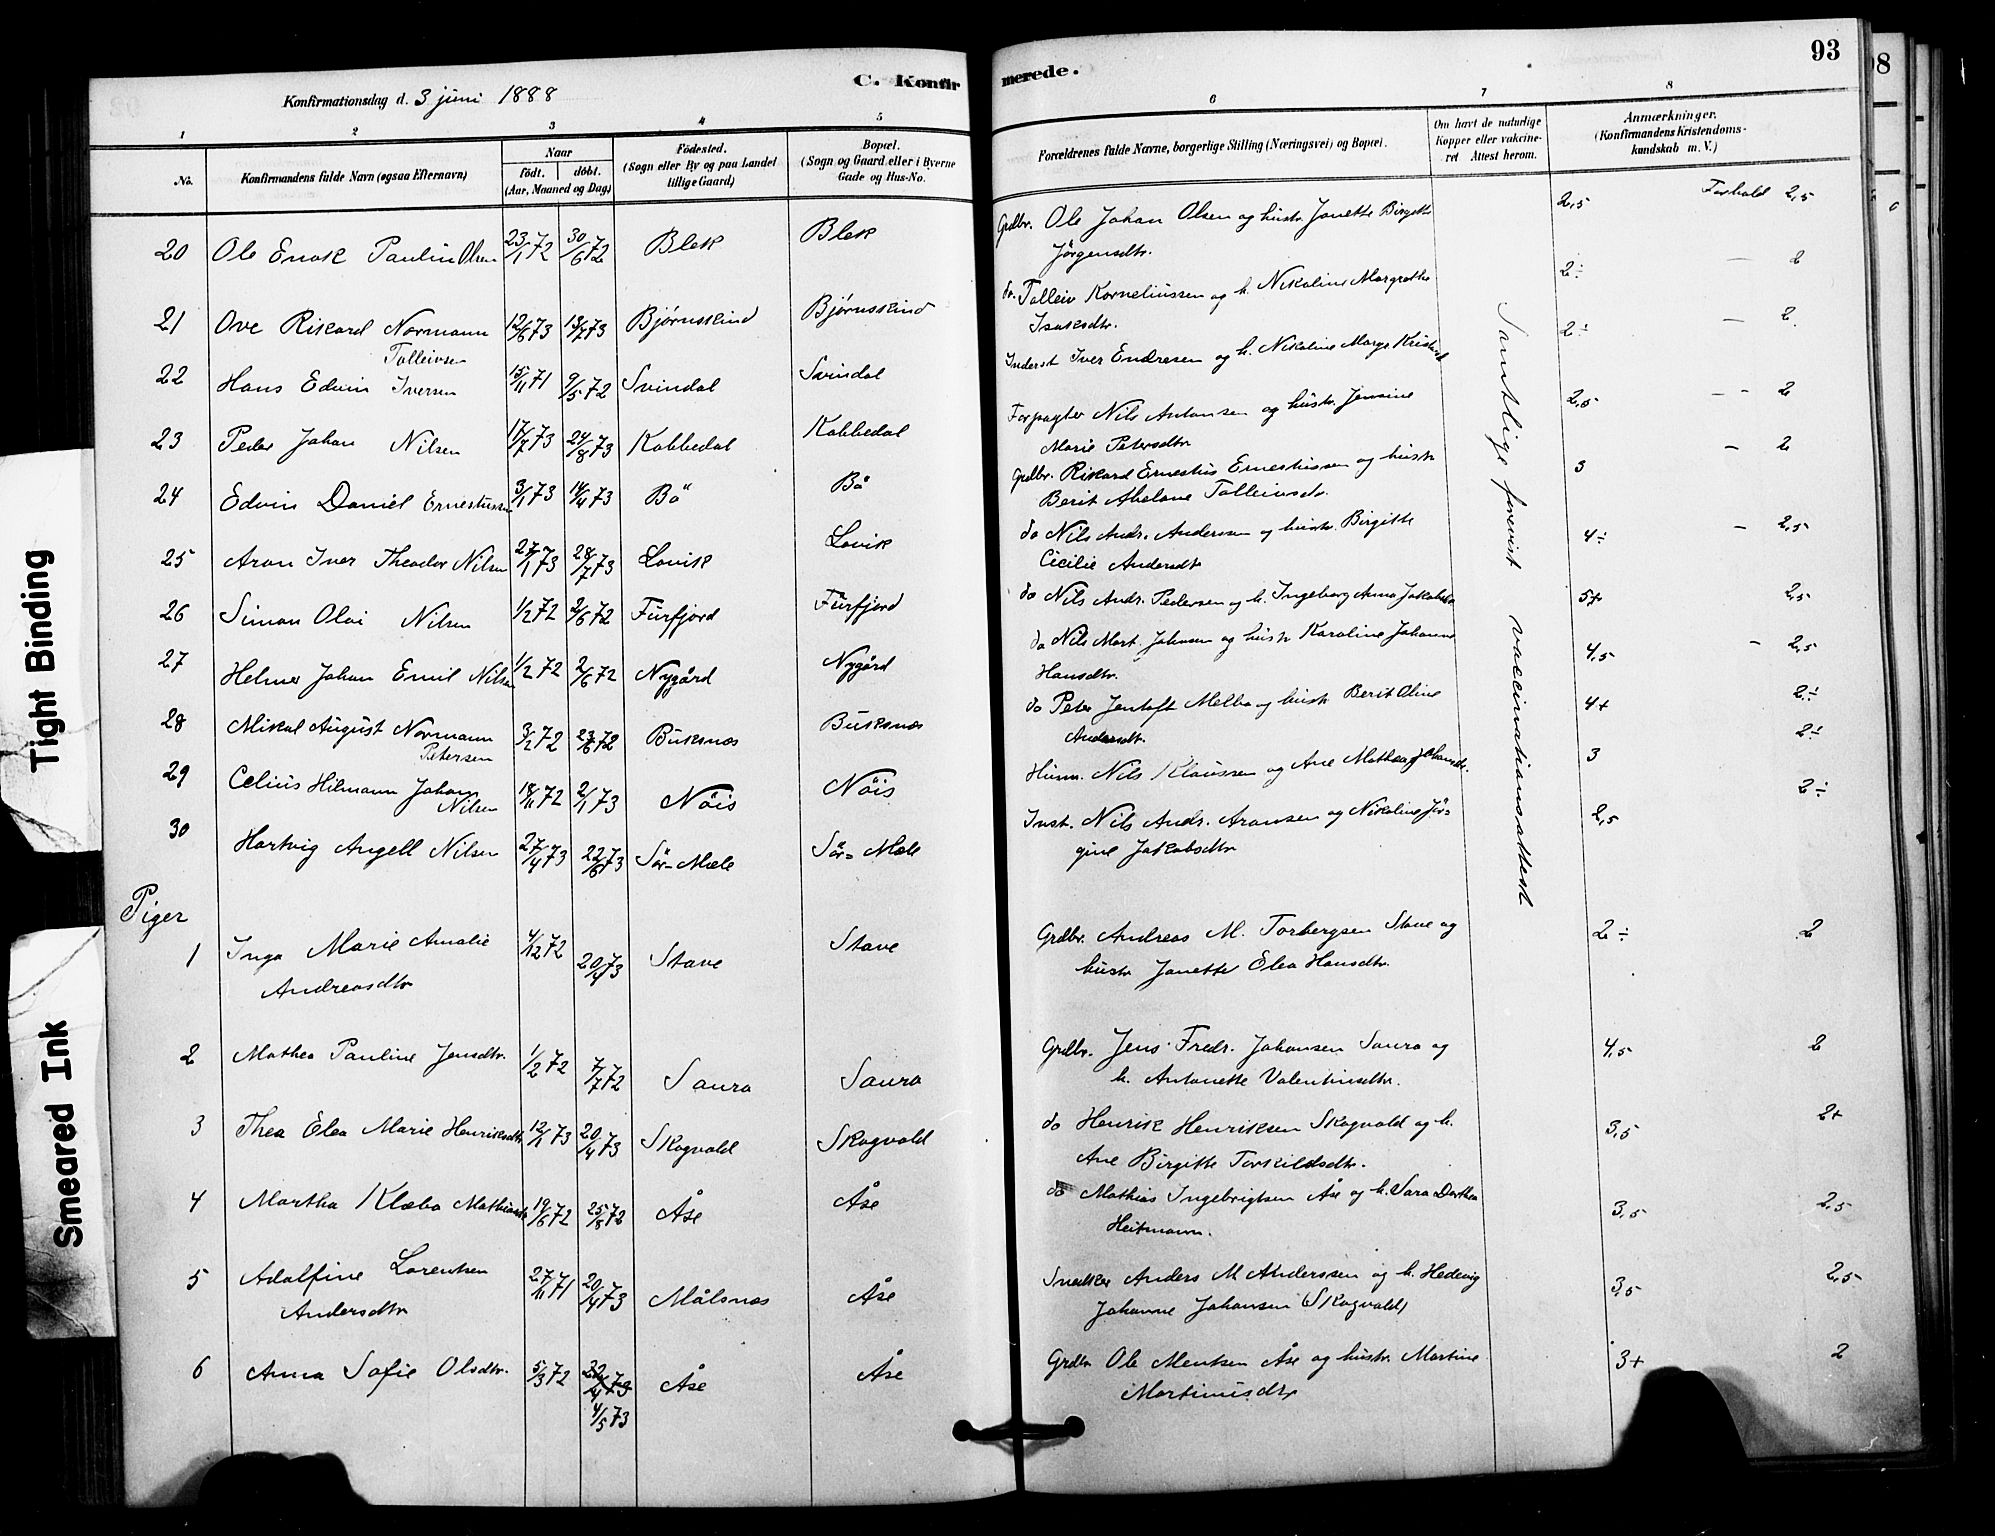 C. Konfirmerede.
93
98
Konfirmationsdag d. 3 juni 1888
1 2 3 4 5 6 7 8
No. Konfirmandens fulde Navn (ogsaa Efternavn)
Naar
født. døbt.
(Aar, Maaned og Dag)
Fødested.
(Sogn eller By og paa Landet
tillige Gaard)
Bopæl.
(Sogn og Gaard eller i Byerne
Gade og Hus-No.
Forældrenes fulde Navne, borgerlige Stilling (Næringsvei) og Bopæl.
Om havt de naturlige
Kopper eller vakcine-
ret Attest herom.
Anmærkninger.
(Konfirmandens Kristendoms-
kundskab m. V.)
20 Ole Enok Paulin Olsen 23/1 72 30/6 72 Blek Blek Grdbr. Ole Johan Olsen og hustr. Janette Birgitte 2,5 Forhold 2,5
Jörgensdtr.
21 Ove Rikard Normann 12/6 73 13/7 73 Bjørnskind Bjørnskind do. Tolleiv Korneliussen og h. Nikoline Margrethe 2÷ — 2
Tolleivsen Isaksdtr.
22 Hans Edvin Iversen 15/11 71 9/5 72 Svindal Svindal Inderst Iver Endresen og h. Nikoline Margr Kristsd 2÷ — 2
23 Peder Johan Nilsen 17/7 73 24/8 73 Kobbedal Kobbedal Forpagter Nils Antonsen og hustr. Jensine 2,5 — 2
Marie Petersdtr
24 Edvin Daniel Ernestussen 3/1 73 14/4 73 Bö Bö Grdbr. Rikard Ernestus Ernestussen og hustr 3 — 2
Berit Abelone Tolleivsdr.
25 Aron Iver Theodor Nilsen 27/1 73 28/7 73 Lovik Lovik do Nils Andr. Andersen og hustr. Birgitte 4÷ — 2,5
Cicilie Andersdt
26 Simon Olai Nilsen 1/2 72 2/6 72 Fürfjord Fürfjord do Nils Andr. Pedersen og h. Ingeborg Anna Jakobsdtr 5+ 2,5
27 Helmer Johan Emil Nilsen 1/2 72 2/6 72 Nygård Nygård do Nils Mort. Johnsen og hustr Karoline Johanne 4,5 — 2,5
Hansdtr.
28 Mikal August Normann 3/2 72 23/6 72 Buksnæs Buksnæs do Peter Jentoft Melbo og hustr Berit Oline 4+ 2÷
Petersen Andersdt.
29 Celius Hilmann Johan 18/11 72 2/1 73 Nöis Nöis Husm. Nils Klaussen og Ane Mathea Johansdr. 3 2÷
Nilsen
30 Hartvig Angell Nilsen 27/4 73 22/6 73 Sör-Mæle Sör-Mæle Inst. Nils Andr. Aronsen og Nikoline Jör- 2,5 2÷
gine Jakobsdtr
Samtlige forevist vaccinationsattest
Piger
1 Inga Marie Amalie 4/12 72 20/4 73 Stave Stave Grdbr. Andreas M. Torbergsen Stave og 2÷ 2
Andreasdtr hustr Janette Elea Hansdtr.
2 Mathea Pauline Jensdtr. 1/2 72 7/7 72 Saura Saura Grdbr. Jens Fredr. Johansen Saura og 4,5 2
h. Antonette Valentinsdtr.
3 Thea Elea Marie Henriksdtr 12/1 73 20/4 73 Skogvold Skogvold do Henrik Henriksen Skogvold og h. 3,5 2+
Ane Birgitte Torkildsdtr.
4 Martha Klæbo Mathiasdtr 19/6 72 25/8 72 Åse Åse do Mathias Ingebrigtsen Åse og h. Sara Dorthea 3,5 2,5
Heitmann.
5 Adolfine Lorentsen 27/11 71 20/4 73 Målsnæs Åse Snedker Anders M Anderssen og h. Hedevig 3,5 2,5
Andersdtr Johanne Johansen (Skogvold)
6 Anna Sofie Olsdtr. 5/3 72 4/5 73 Åse Åse Grdbr Ole Mentsen Åse og hustr. Martine 3+ 2
Martinusdtr
Tight Binding
Smeared Ink